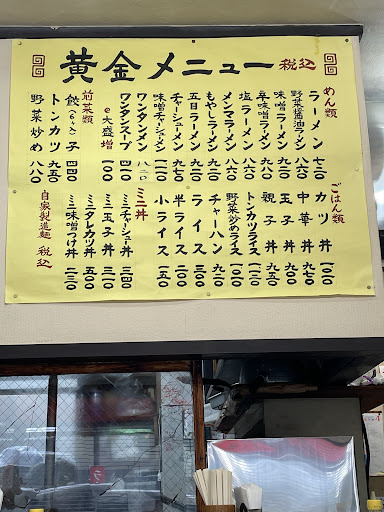 黄金メニュー 税込
めん類
ラーメン 七三〇
野菜醤油ラーメン 八六〇
味噌ラーメン 八六〇
辛味噌ラーメン
塩ラーメン 八六〇
メンマラーメン 八六〇
もやしラーメン 九二〇
五目ラーメン 九七〇
チャーシューメン 九七〇
味噌チャーシューメン 一一二〇
ワンタンメン 八二〇
ワンタンスープ 四一〇
大盛増 一〇〇
前菜類
餃子 四四〇
トンカツ 九五〇
野菜炒め 八八〇
ごはん類
カツ丼
中華丼 九七〇
玉子丼
親子丼
トンカツライス
野菜炒めライス
チャーハン
ライス
半ライス
小ライス 一五〇
ミニ丼
ミニチャーシュー丼 三四〇
ミニ玉子丼 三一〇
ミニタレカツ丼 五〇〇
ミニ味噌つけ丼 二三〇
自家製造麺 税込